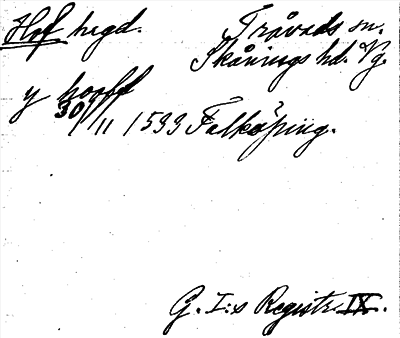 Hof hegd. Tråvads sn.
Skånings hd. Vg.
y hooff
30/11 1533 Falköping.
G. I:s Registr. IX.